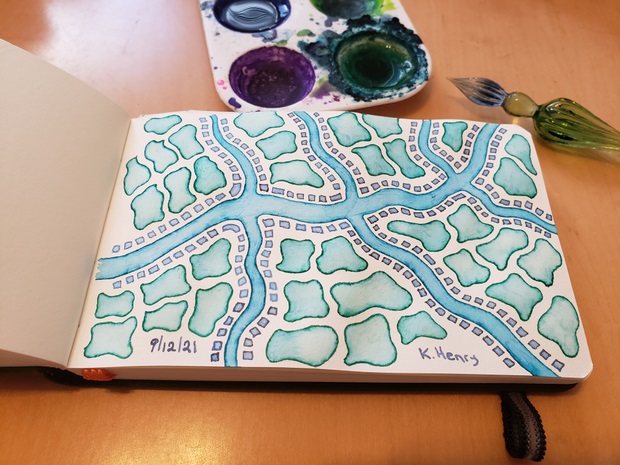 9/12/21
K. Henry